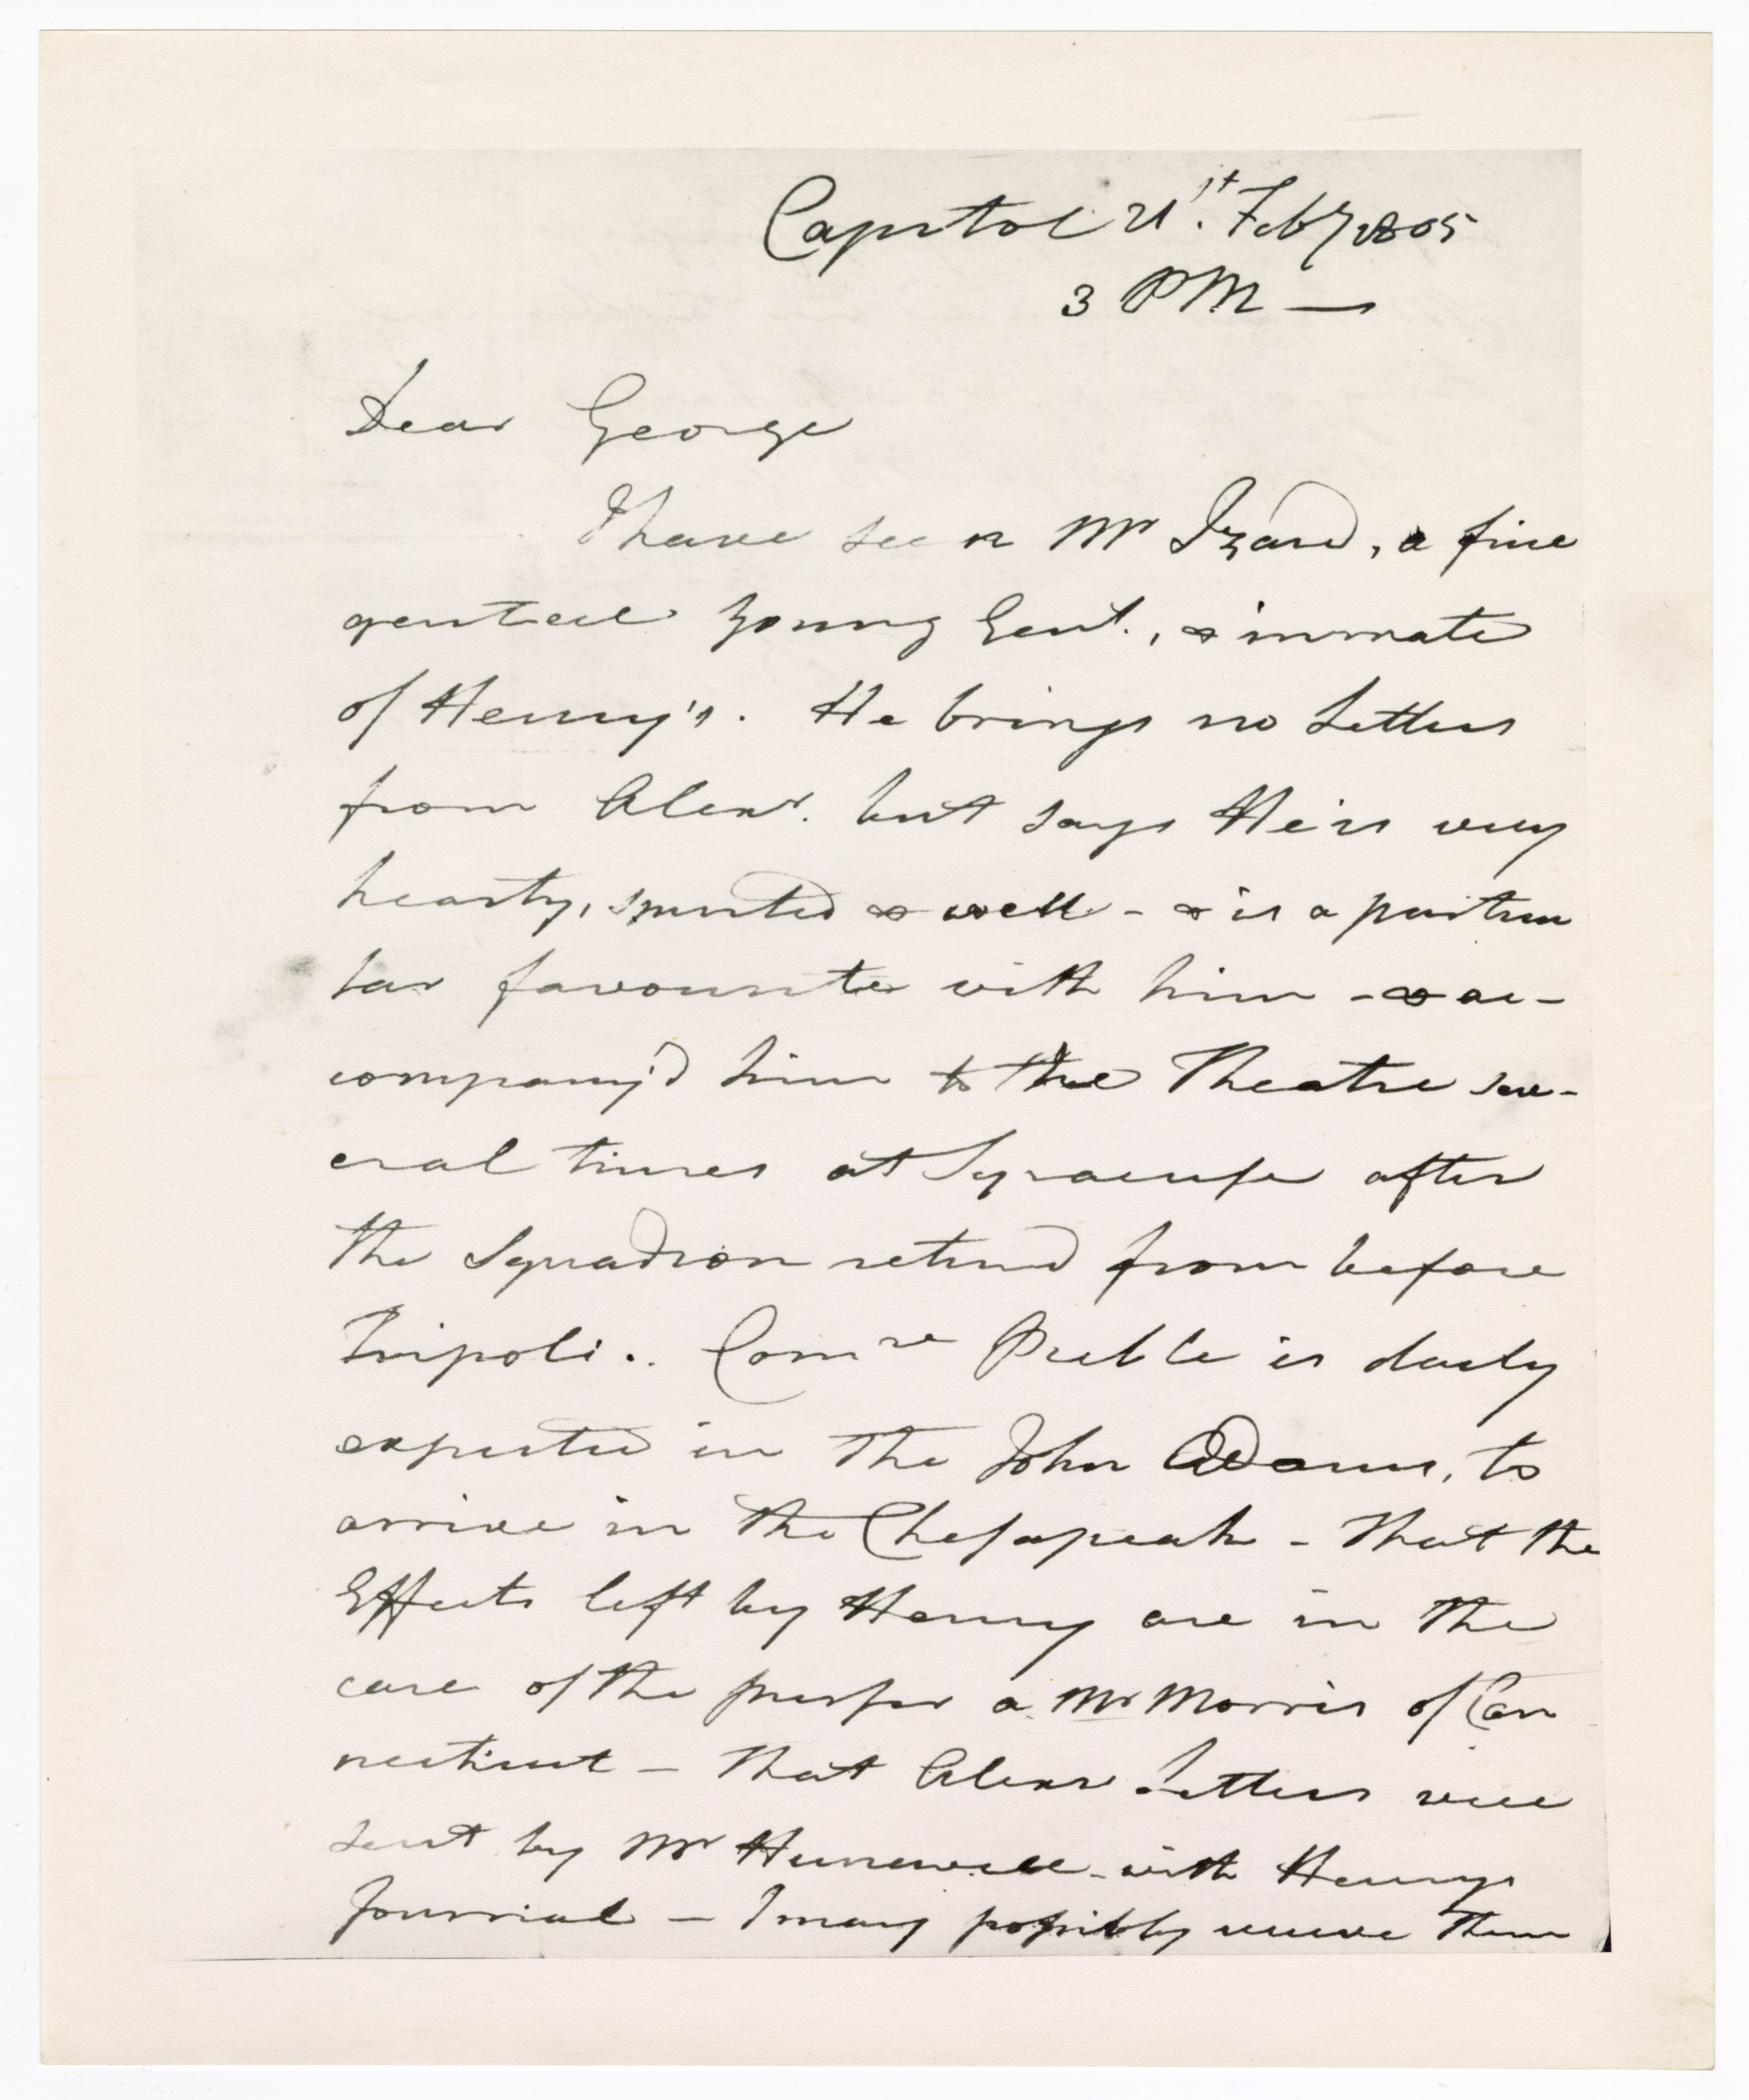 Capitol 21st. Feby 1805
3 PM —
Dear George
I have seen Mr Izard, a fine
genteel young Gent., & inmate
of Henry's. He brings no Letters
from Alexr. but says He is very
hearty, spirited & well - & is a particu
lar favourite with him - & ac-
company'd him to the Theatre sev-
eral times at Syracuse after
the Squadron returnd from before
Tripoli.. Comre Preble is daily
expected in the John Adams, to
arrive in the Chesapeak - That the
Effects left by Henry are in the
care of the purser a Mr Morris of Con
necticut - That Alexr Letters were
sent by Mr Hunewell - with Henrys
Journal - I may possibly receive them